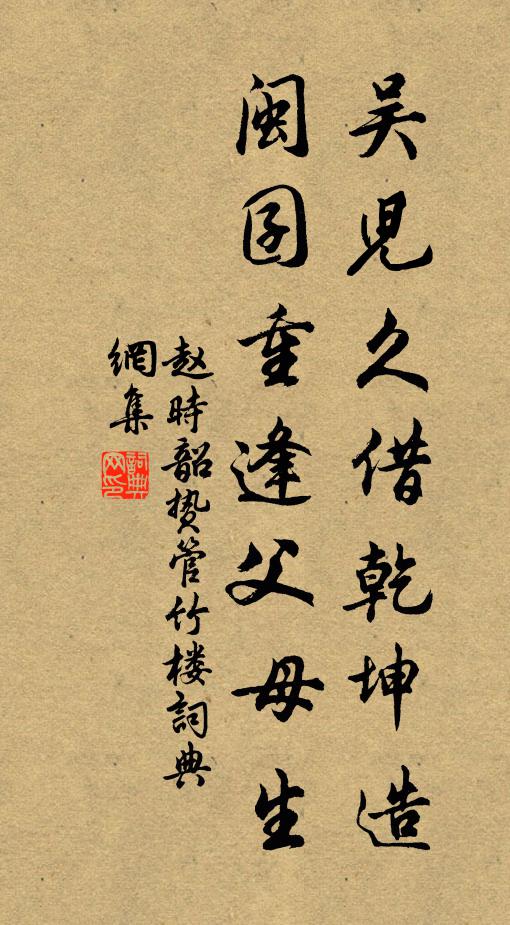 吴兒久借乾坤造
闽囝重逢父母生
赵時韶贽管竹楼詞典
網集
詞典
网印